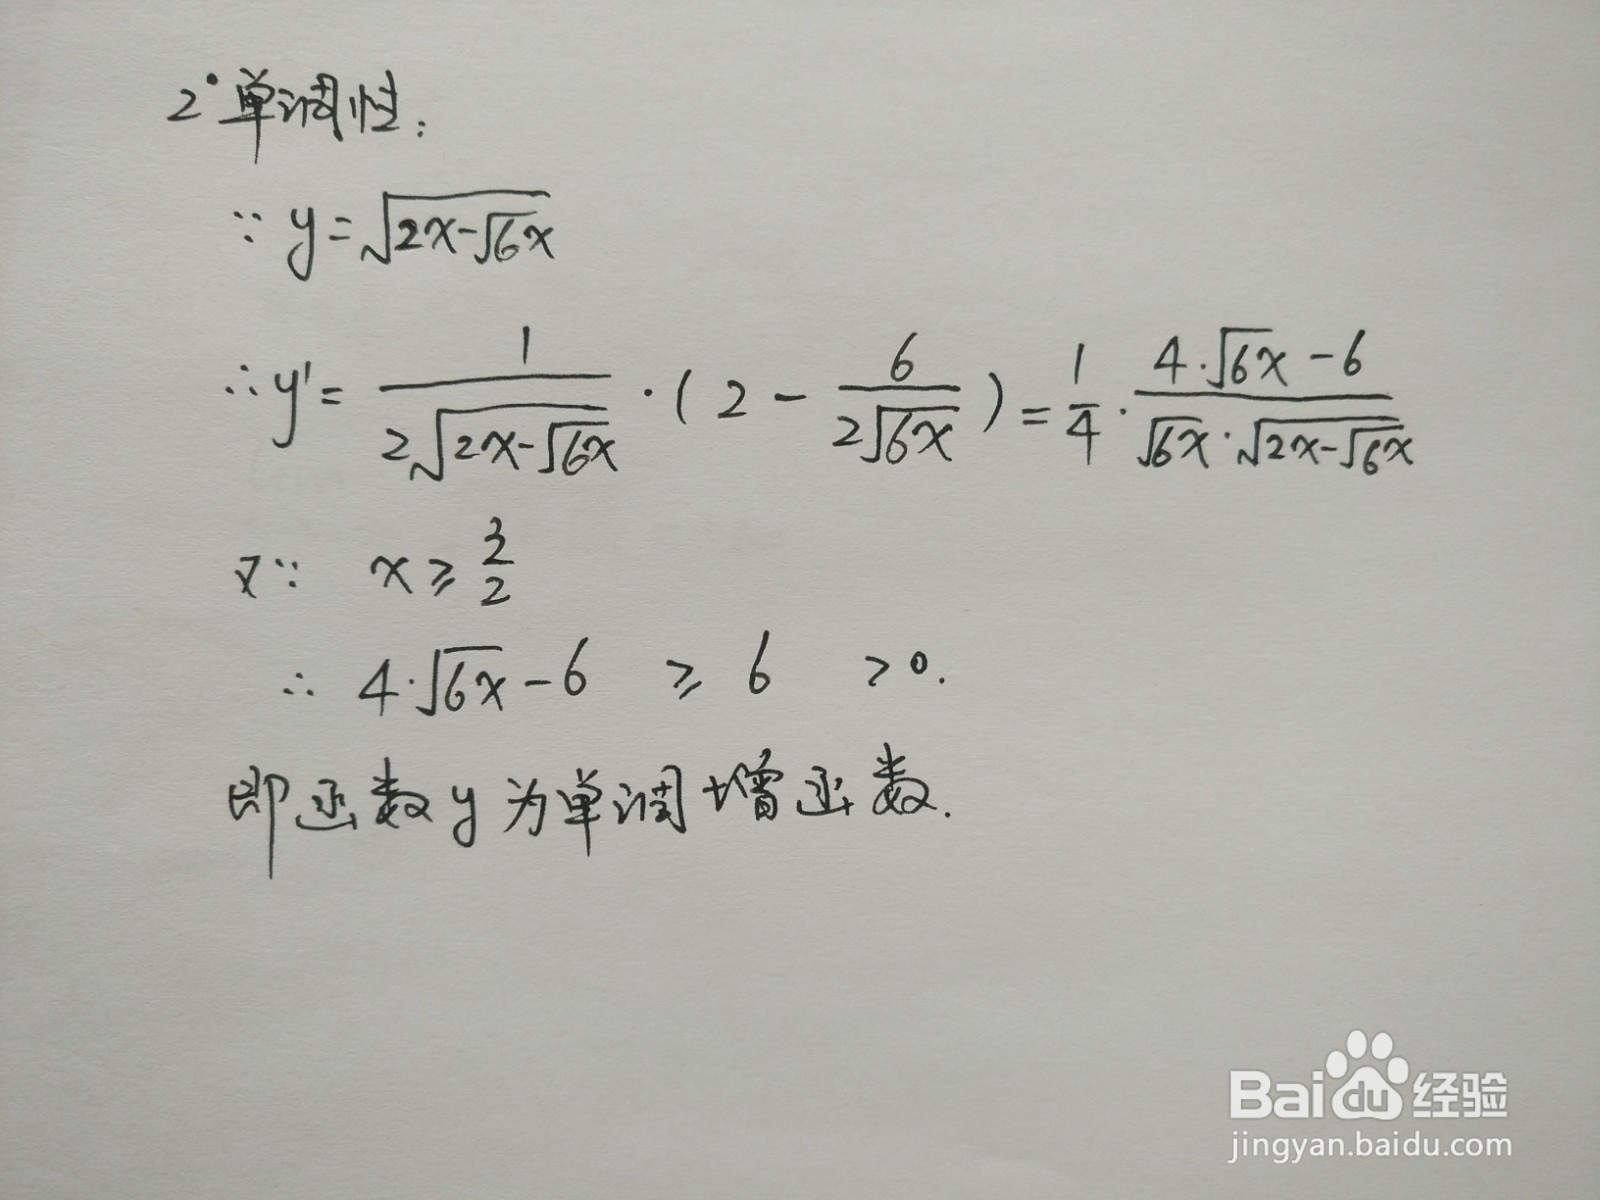 2° 单调性:
∵ y=√(2x-√(6x))
∴ y' = 1/(2√(2x-√(6x))) · (2 - 6/(2√(6x))) = 1/4 · (4·√(6x) - 6)/(√(6x)·√(2x-√(6x)))
又∵ x ≥ 3/2
∴ 4·√(6x) - 6 ≥ 6 > 0.
即函数 y 为单调增函数.
Baidu 经验
jingyan.baidu.com